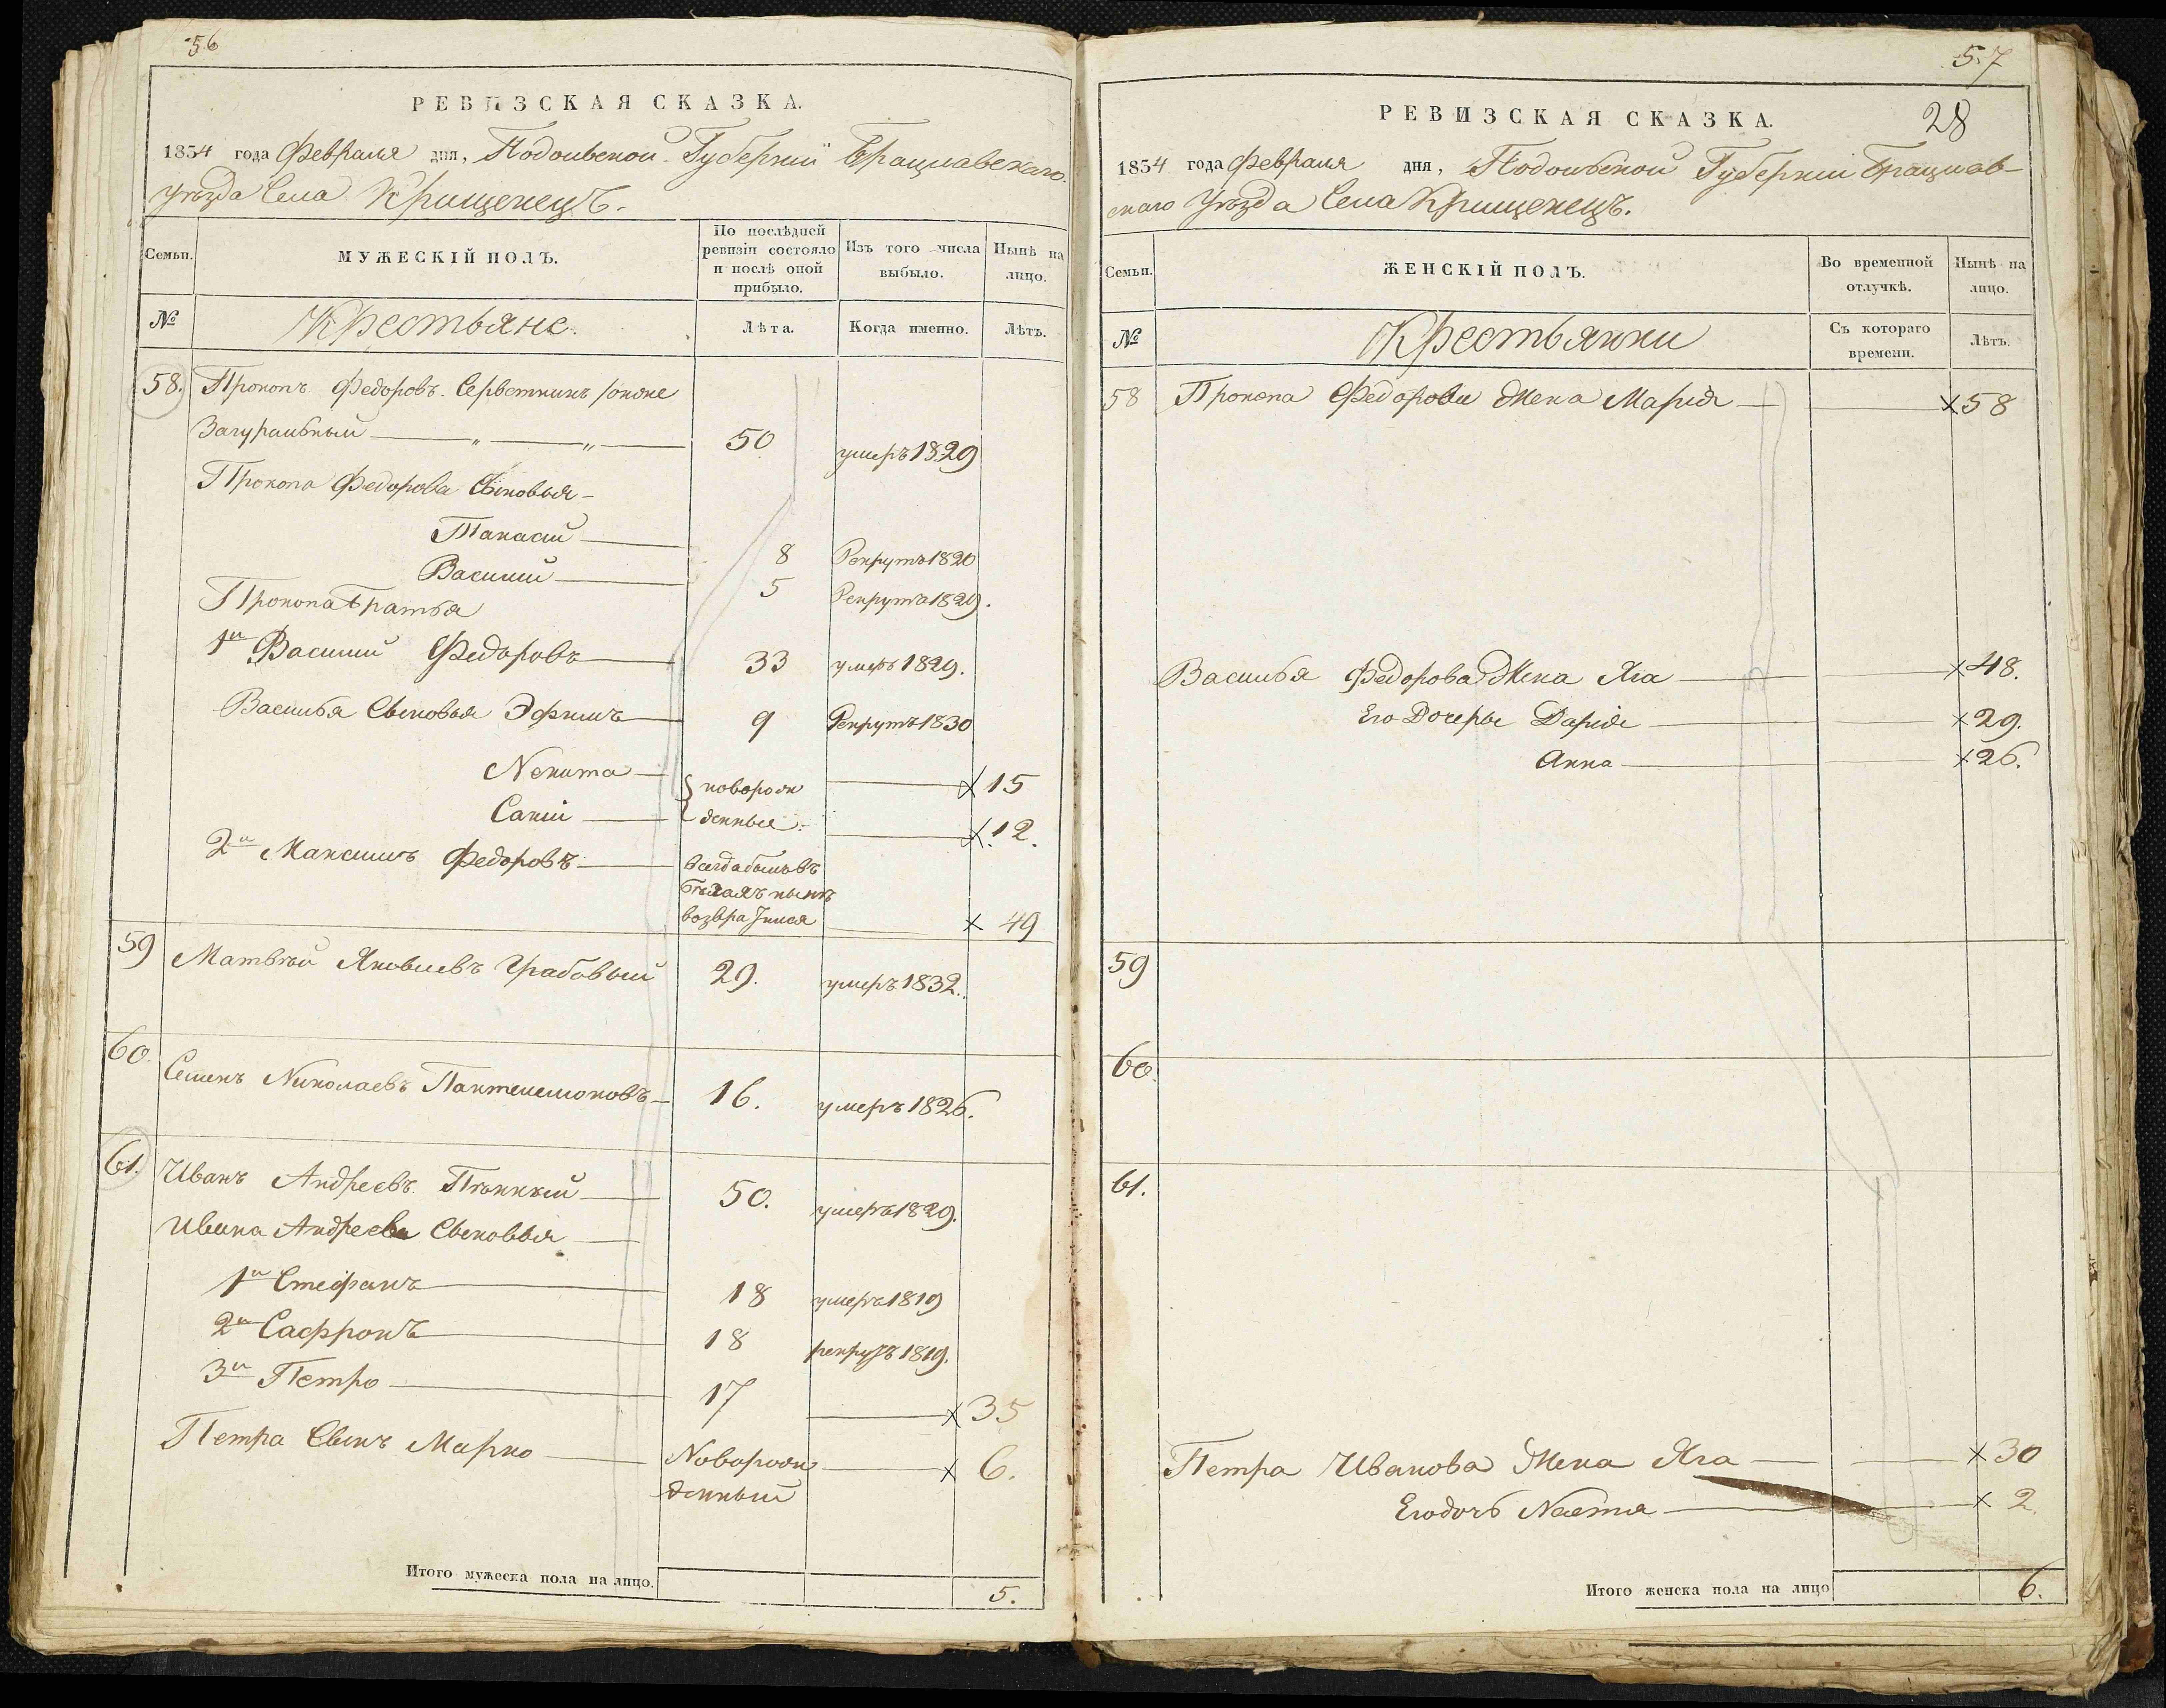 56
РЕВИЗСКАЯ СКАЗКА.
1834 года Февраля дня, Подольской Губерніи Брацлавскаго
Уѣзда Села Крищенецъ.
Семьи.
МУЖЕСКІЙ ПОЛЪ.
По послѣдней ревизіи состояло и послѣ оной прибыло.
Изъ того числа выбыло.
Нынѣ на лицо.
№
Крестьяне.
Лѣта.
Когда именно.
Лѣтъ.
58. Прокопъ Федоровъ
Загуральный 50 умеръ 1829
Прокопа Федорова Сыновья
Танасій 8 Рекрутъ 1820
Василий 5 Рекрутъ 1829.
Прокопа Братья
1й Василий Федоровъ 33 умеръ 1829.
Василья Сыновья Эфимъ 9 Рекрутъ 1830
Некита новорож 15
Сакій денные. 12.
2й Максимъ Федоровъ
нынѣ
49
59 Матвѣй Яковлевъ Грабовый 29. умеръ 1832.
60. Семенъ Николаевъ Пантелемоновъ 16. умеръ 1826.
61. Иванъ Андреевъ 50. умеръ 1829.
Ивана Андреева Сыновья
1й Стефанъ 18 умеръ 1819
2й Сафронъ 18 рекрутъ 1819.
3й Петро 17 35
Петра Сынъ Марко Новорож 6.
денный
Итого мужеска пола на лицо. 5.
57
28
РЕВИЗСКАЯ СКАЗКА.
1834 года Февраля дня, Подольской Губерніи Брацлав-
скаго Уѣзда Села Крищенецъ.
Семьи.
ЖЕНСКІЙ ПОЛЪ.
Во временной отлучкѣ.
Нынѣ на лицо.
№
Крестьянки
Съ котораго времени.
Лѣтъ.
58 Прокопа Федорова Жена Марія 58
Василья Федорова Жена Яга 48.
Его Дочеры Дарія 29.
Анна 26.
59
60.
61.
Петра Иванова Жена Яга 30
Его дочь Настя 2.
Итого женска пола на лицо 6.